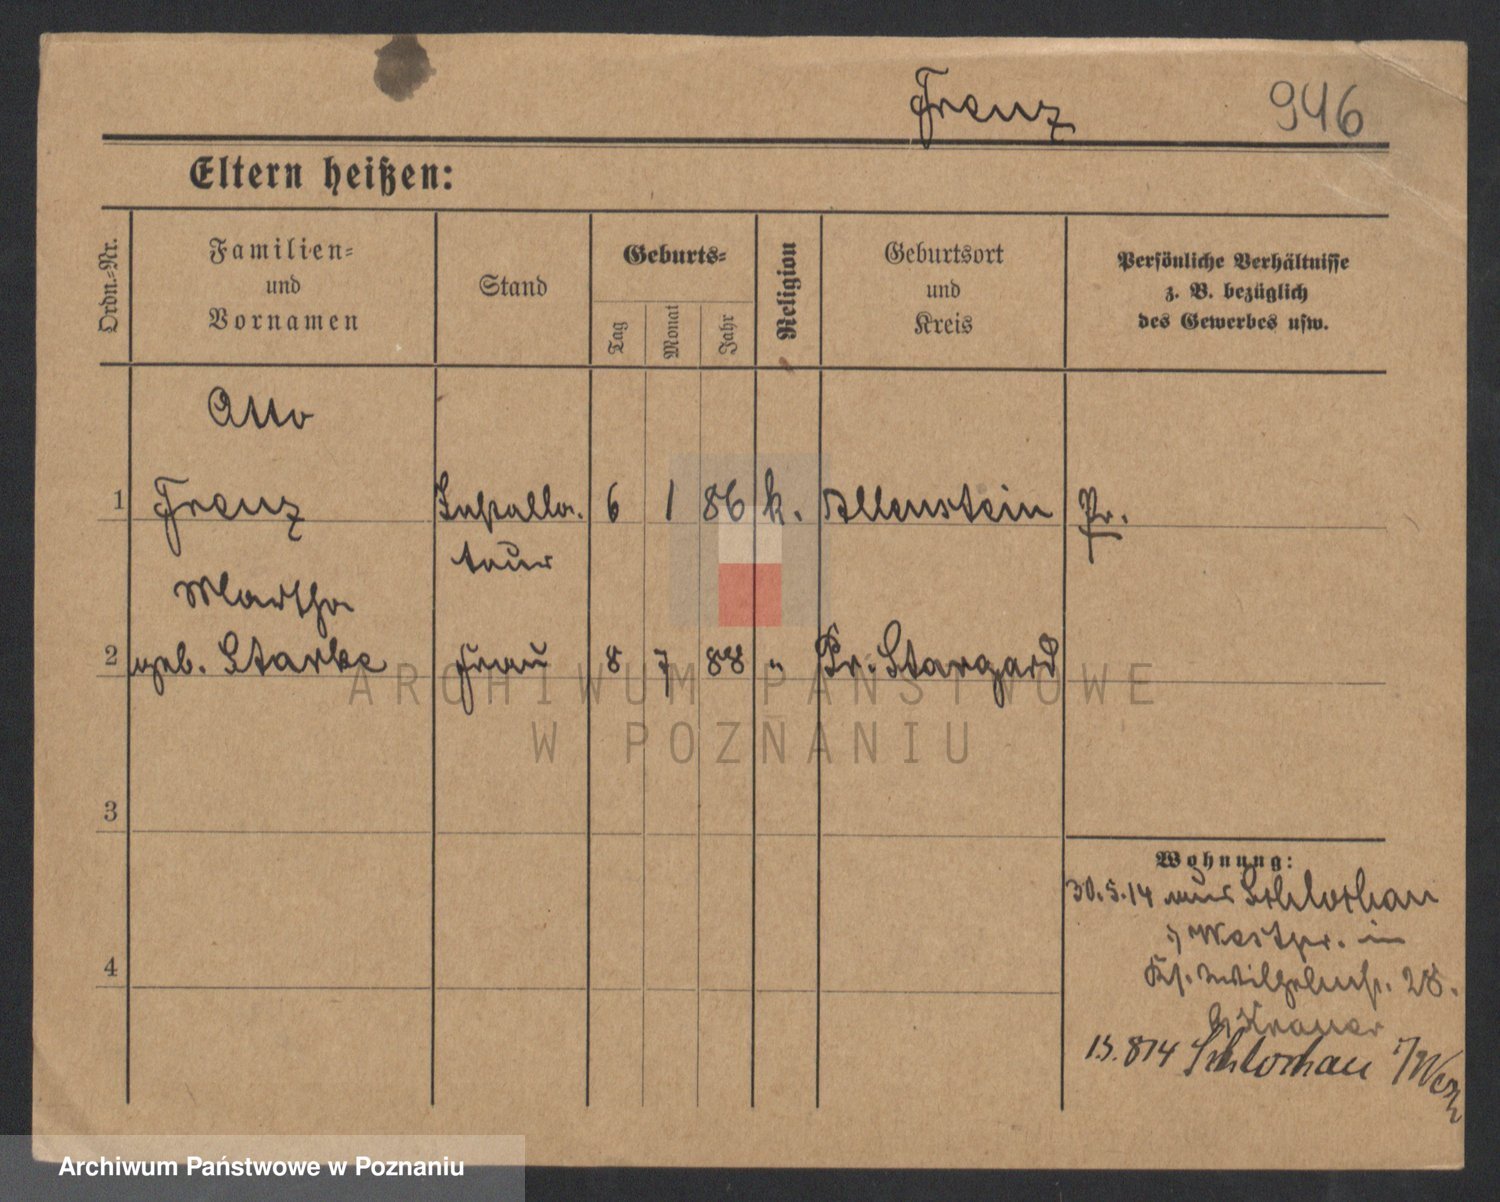 Frenz
946
Eltern heißen:
Ordn.-Nr.
Familien-
und
Vornamen
Stand
Geburts-
Tag
Monat
Jahr
Religion
Geburtsort
und
Kreis
Persönliche Verhältnisse
z. B. bezüglich
des Gewerbes usw.
Otto
1 Frenz Installa. 6 1 86 k. Allenstein Pr.
teur
Martha
2 geb. Starke Frau 8 7 88 " Pr. Stargard
3
Wohnung:
30.5.14 aus Schlochau
i/ Westpr. in
4
Wilhelmstr. 28.
b/ Kramer
15.8 14 Schlochau i/Westp
ARCHIWUM PAŃSTWOWE
W POZNANIU
Archiwum Państwowe w Poznaniu